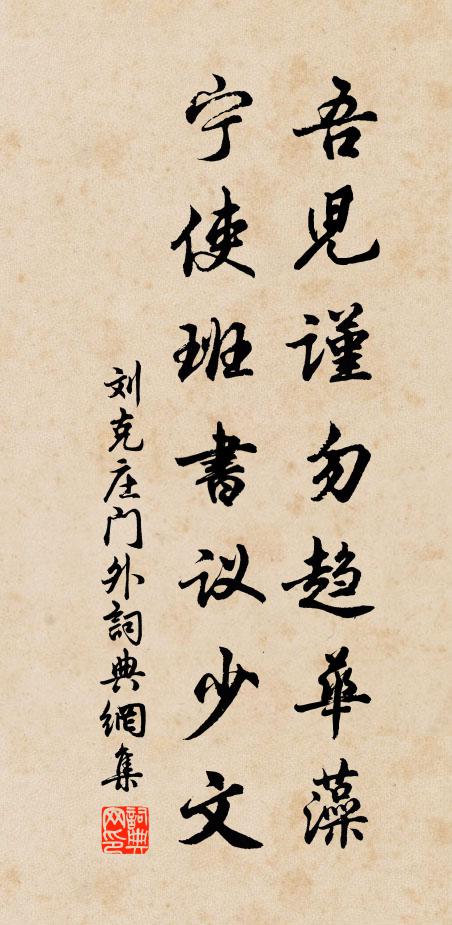 吾児謹勿趋華藻
宁使班書议少文
刘克庄门外詞典網集
詞典网印